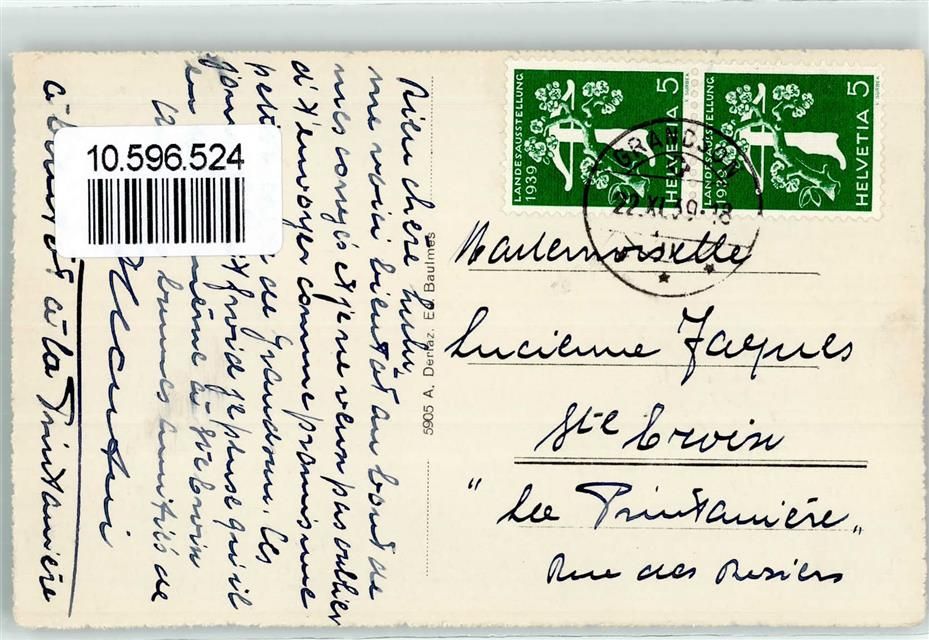 10.596.524
LANDESAUSSTELLUNG
1939
HELVETIA 5
LANDESAUSSTELLUNG
1939
HELVETIA 5
GRANDSON
22.XI.39.-18
Mademoiselle
Lucienne Jaques
Ste Croix
"La Printanière"
Rue des Rosiers
5905 A. Deriaz. Ed. Baulmes
Bien chère Lulu,
me voici bientôt au bout de
mes congés et je ne veux pas oublier
d't'envoyer comme promis une
pet de Grandson. Les
jou t froid je pense qu'il
en même à Ste Croix
bonnes amitiés de
à bientôt à la Printanière